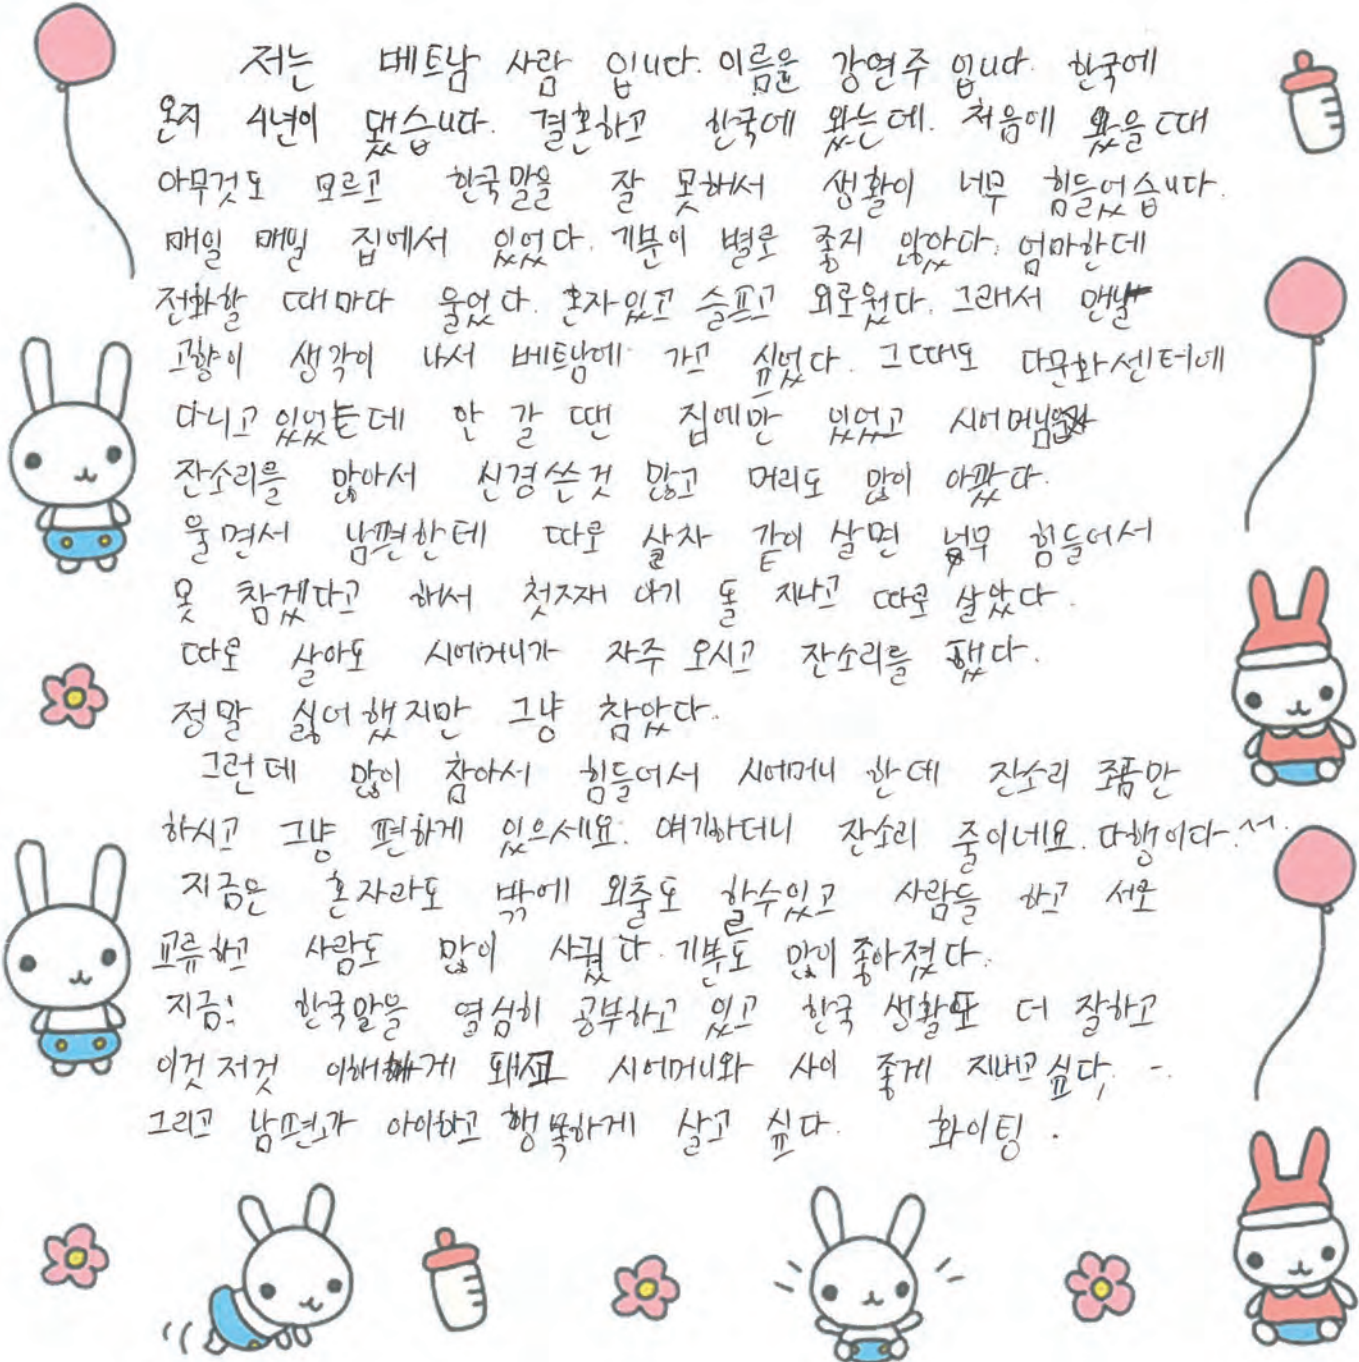 저는 베트남 사람 입니다. 이름은 강연주 입니다. 한국에
온지 4년이 됐습니다. 결혼하고 한국에 왔는데. 처음에 왔을때
아무것도 모르고 한국말을 잘 못해서 생활이 너무 힘들었습니다.
매일 매일 집에서 있었다. 기분이 별로 좋지 않았다. 엄마한데
전화할 때마다 울었다. 혼자있고 슬프고 외로웠다. 그래서 맨날
고향이 생각이 나서 베트남에 가고 싶었다. 그때도 다문화센터에
다니고 있었는데 안 갈 땐 집에만 있었고 시어머님
잔소리를 많아서 신경쓴것 많고 머리도 많이 아팠다.
울면서 남편한테 따로 살자 같이 살면 너무 힘들어서
못 참겠다고 해서 첫째 아기 돌 지나고 따로 살았다.
따로 살아도 시어머니가 자주 오시고 잔소리를 했다.
정말 싫어했지만 그냥 참았다.
그런데 많이 참아서 힘들어서 시어머니 한데 잔소리 조금만
하시고 그냥 편하게 있으세요. 얘기하더니 잔소리 줄이네요. 다행이다~^^.
지금은 혼자라도 밖에 외출도 할수있고 사람들 하고 서로
교류하고 사람도 많이 사궜다. 기분도 많이 좋아졌다.
지금! 한국말을 열심히 공부하고 있고 한국 생활도 더 잘하고
이것 저것 이해하게 돼서 시어머니와 사이 좋게 지내고 싶다. -.
그리고 남편과 아이하고 행복하게 살고 싶다. 화이팅.